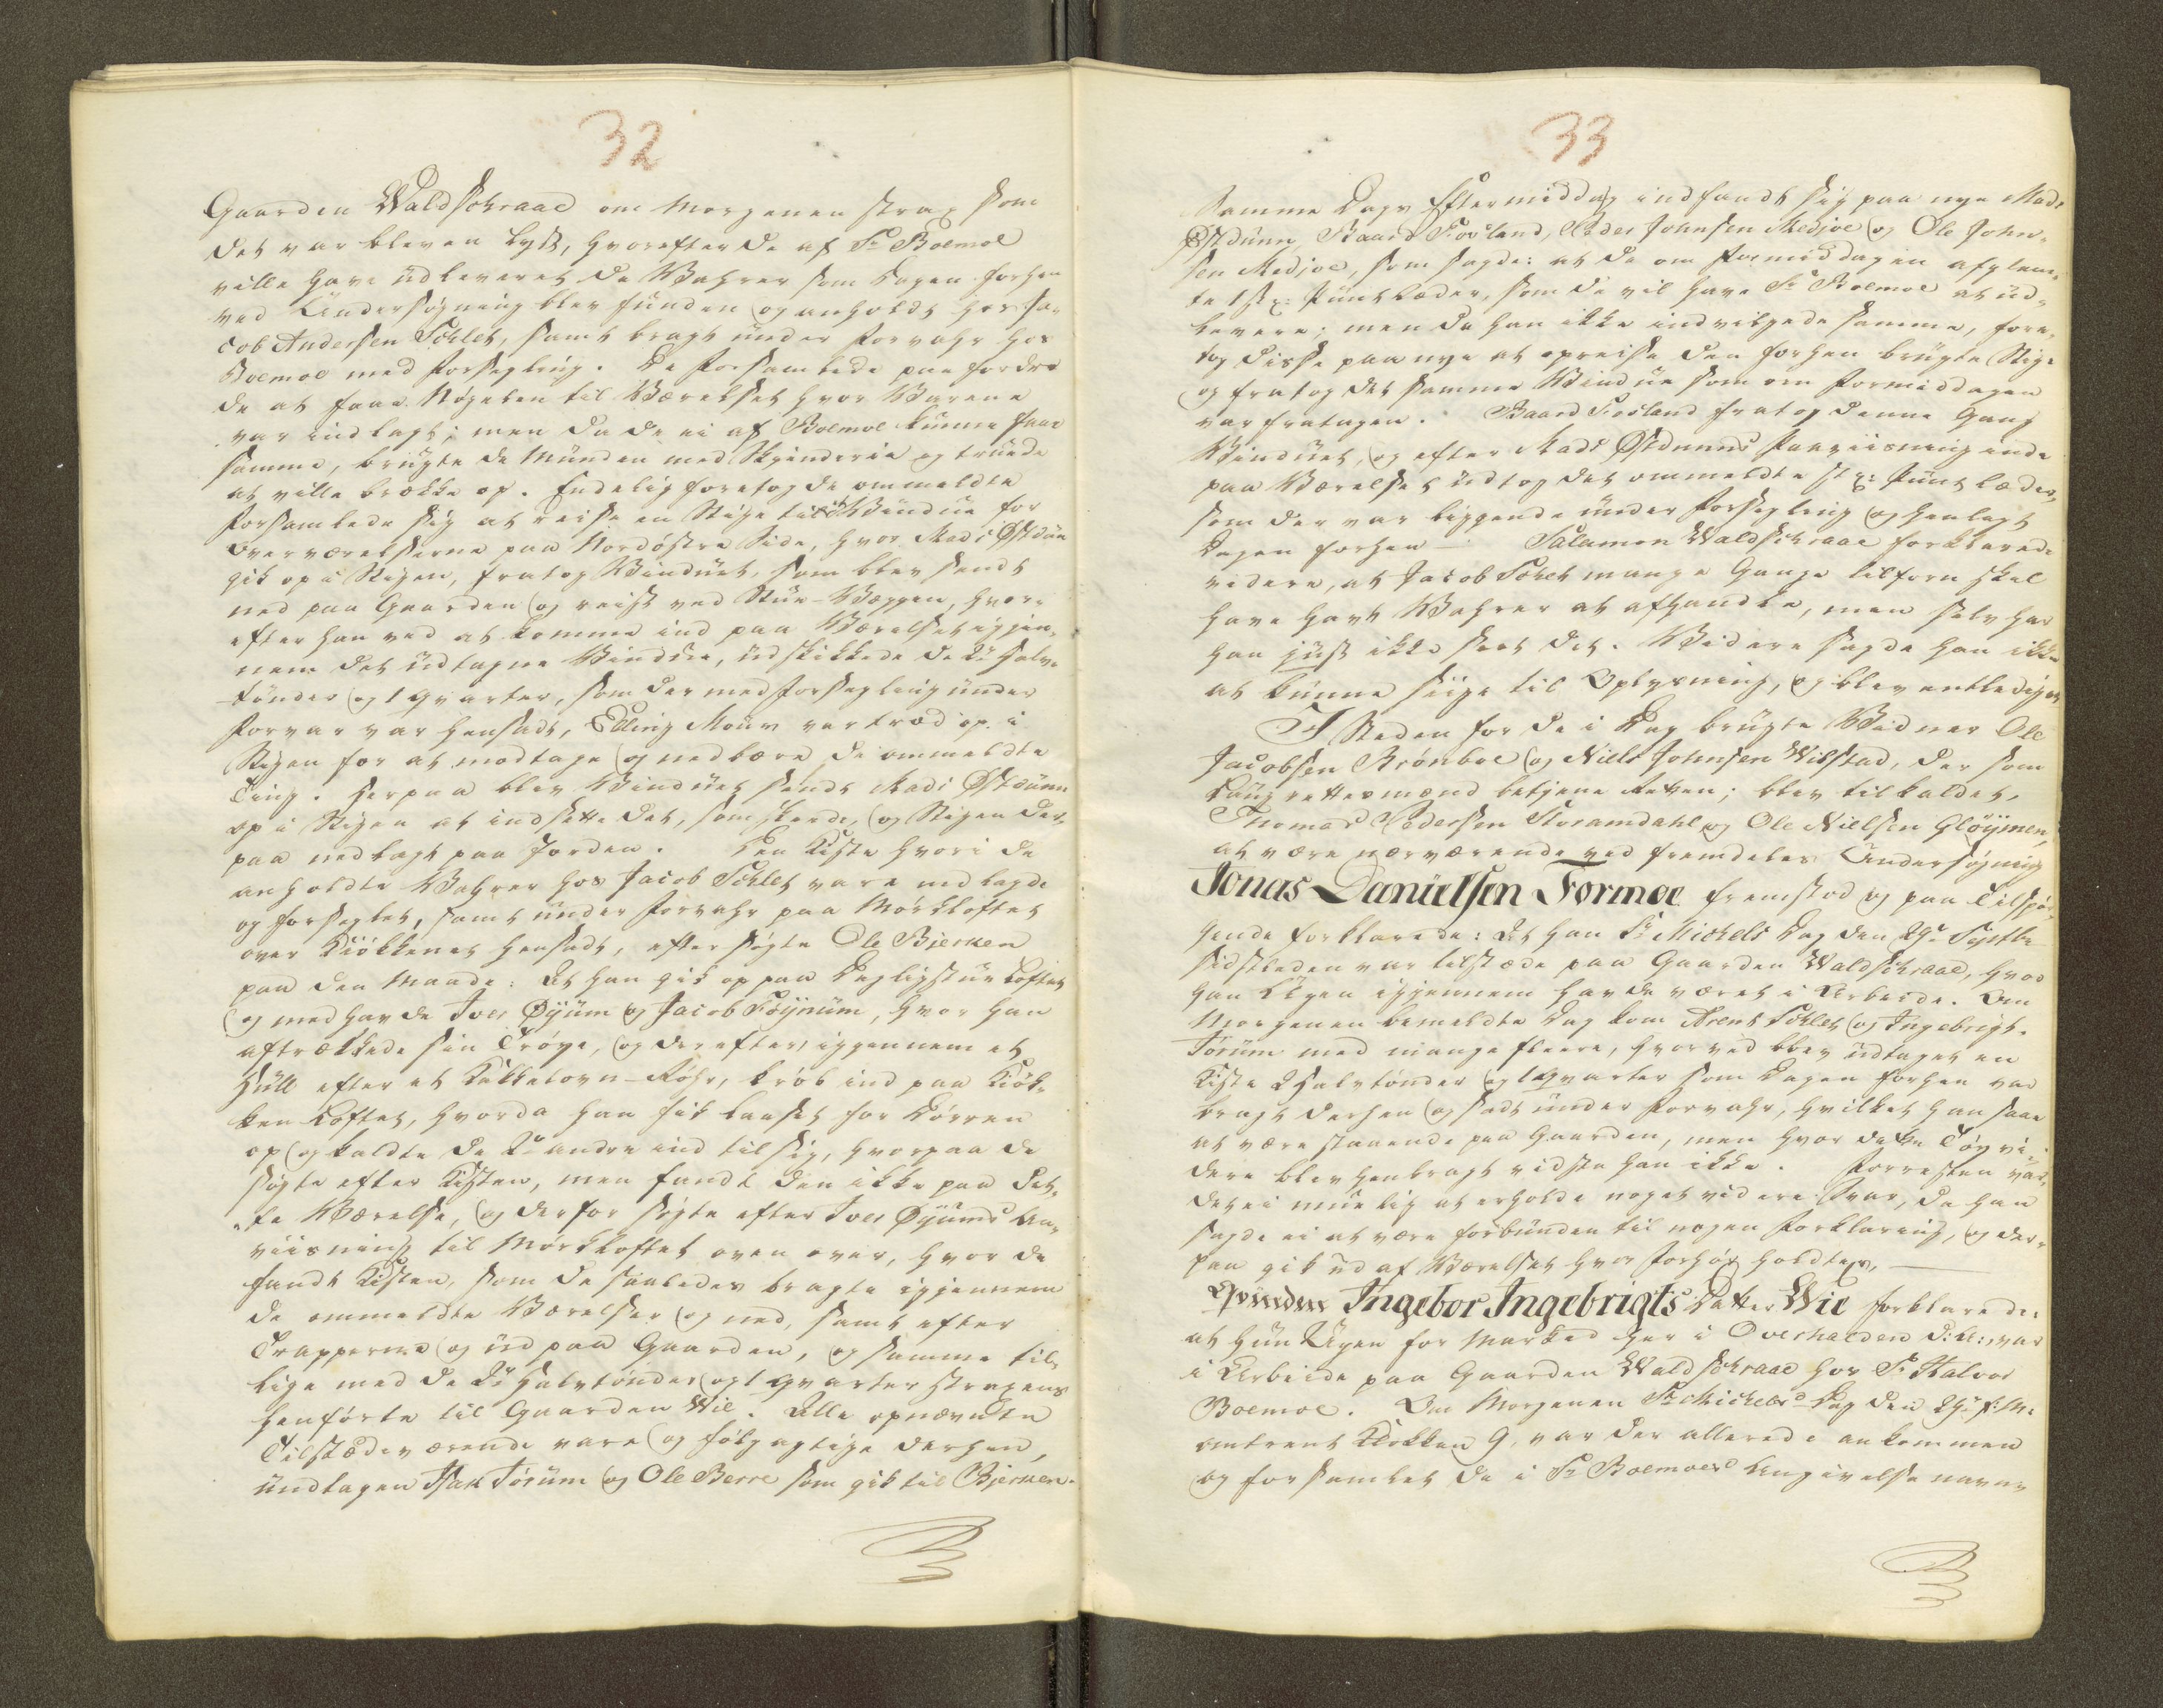 32
Gaarden Waldschraae om Morgenen strax som
det var bleven Lyst, hvorefter de af Sr Boemoe
ville have üdleveret de Wahrer som Dagen forhen
ved Ündersøgning blev fünden og anholdt hos Ja-
cob Andersen Schlet, samt bragt ünder Forvahr hos
Boemoe med Forsegling. De Forsamlede paafordre
de at faae Nøgelen til Værelset hvor Varene
var indlagt; men da de ei af Boemoe kunne faae
samme, brügte de Münden med Skjenderie og truede
at ville brække op. Endelig foretog de ommeldte
Forsamlede sig at reise en Stige til Vindue for
Overværelserne paa Nordøstre Side, hvor Mads Østdün
gik op i Stigen, fratog Vindüet, som blev sendt
ned paa Gaarden og reist ved Stue-Væggen, hvor-
efter han ved at komme ind paa Værelset igjen-
nem det üdtagne Vindüe, üdskikkede de 2de Halv-
tønder og 1 Qvarter, som der med Forsegling ünder
Forvar var hensadt, Elling Moum vertræd op i
Stigen for at modtage og nedbære de ommeldte
Ting. Herpaa blev Vindüet sendt Mads Østdünn
op i Stigen at indsette det, som skeede, og Stigen der-
paa nedlagt paa Jorden. Den Kiste hvori de
anholdte Wahrer hos Jacob Schlet vare nedlagde
og forseglet, samt ünder Forvahr paa Mörkloftet
over Kiökkenet hensadt, eftersøgte Ole Bjerken
paa den Maade: At han gik op paa Dagligstue Loftet
og med havde Iver Øyüm og Jacob Föynüm, hvor han
aftrækkede sin Trøye, og derefter, igjennem et
Hüll efter et Kakkelovn-Röhr, kröb ind paa Kiök-
ken Loftet, hvorda han fik Laaset for Dörren
op og kaldte de 2de andre ind til sig, hvorpaa de
søgte efter Kisten, men fandt den ikke paa det-
te Værelse, og derfor søgte efter Iver Øyüms An-
viisning til Mörkloftet oven over, hvor de
fandt Kisten, som de saaledes bragte igjennem
de ommeldte Værelser og ned, samt efter
Trapperne og üd paa Gaarden, og samme til-
lige med de 2de Halvtønder og 1 Qvarter straxens
henførte til Gaarden Wie. Alle opnævnte
Tilstædeværende vare og følgagtige derhen,
ündtagen Isak Törüm og Ole Berre som gik til Bjerken.
33
Samme Dags Eftermiddag indfandt sig paa nye Mads
Østdünn, Baard Fosland, Peder Johnsen Medjoe og Ole John-
sen Medjoe, som sagde: at de om Formiddagen afglem-
te 1 st: Pünt Læder, som de vil have Sr Boemoe at üd-
levere; men da han ikke indvilgede samme, fore-
tog disse paa nye at opreise den forhen brügte Stige
og fratog det samme Vindüe som om Formiddagen
var fratagen. Baard Fosland fratog denne Gang
Vindüet, og efter Mads Østdunns Paaviisning inde
paa Værelset üdtog det ommeldte st: Pünt Læder,
som der var liggende ünder Forsegling og henlagt
Dagen forhen — Salamon Waldschraae forklarede
videre, at Jacob Schlet mange Gange tilforn skal
have havt Wahrer at afhandle, men selv har
han jüst ikke seet det. Videre sagde han ikke
at künne siige til Oplysning, og blev entlediget
I Steden for de i Dag brügte Vidner Ole
Jacobsen Brönboe og Niels Johnsen Wibstad, der som
Laugrettesmænd betjene Retten; blev tilkaldet,
Thomas Pedersen Storamdahl og Ole Nielsen Glöymen,
at være nærværende ved fremdeles Ündersøgning
Jonas Danielsen Formoe fremstod og paa Tilspør-
gende forklarede: At han St Michels Dag den 29de Septbr
sidstleden var tilstæde paa Gaarden Waldschraae, hvor
han Ugen igjennem havde været i Arbeide. Om
Morgenen bemeldte Dag kom Arent Schlet og Ingebrigt
Törüm med mange fleere, hvorved blev üdtaget en
Kiste 2 Halvtönder og 1 Qvarter som Dagen forhen var
bragt derhen og sadt ünder Forvahr, hvilket han saae
at være staaende paa Gaarden, men hvor dette Töy vi-
dere blev henbragt vidste han ikke. Forresten var
det ei muelig at erholde noget videre Svar, da han
sagde ei at være forbünden til nogen Forklaring, og der-
paa gik üd af Værelset hvor Forhör holdtes, —
Qvinden Ingebor Ingebrigts Datter Wie forklarede:
at hün Ugen for Marked her i Overhalden d: A: var
i Arbeide paa Gaarden Waldschraae hos Sr Halvor
Boemoe. Om Morgenen St Michels Dag den 29de f: M:
omtrent Klokken 9, var der allerede ankommen
og forsamlet de i Sr Boemoes Angivelse navne